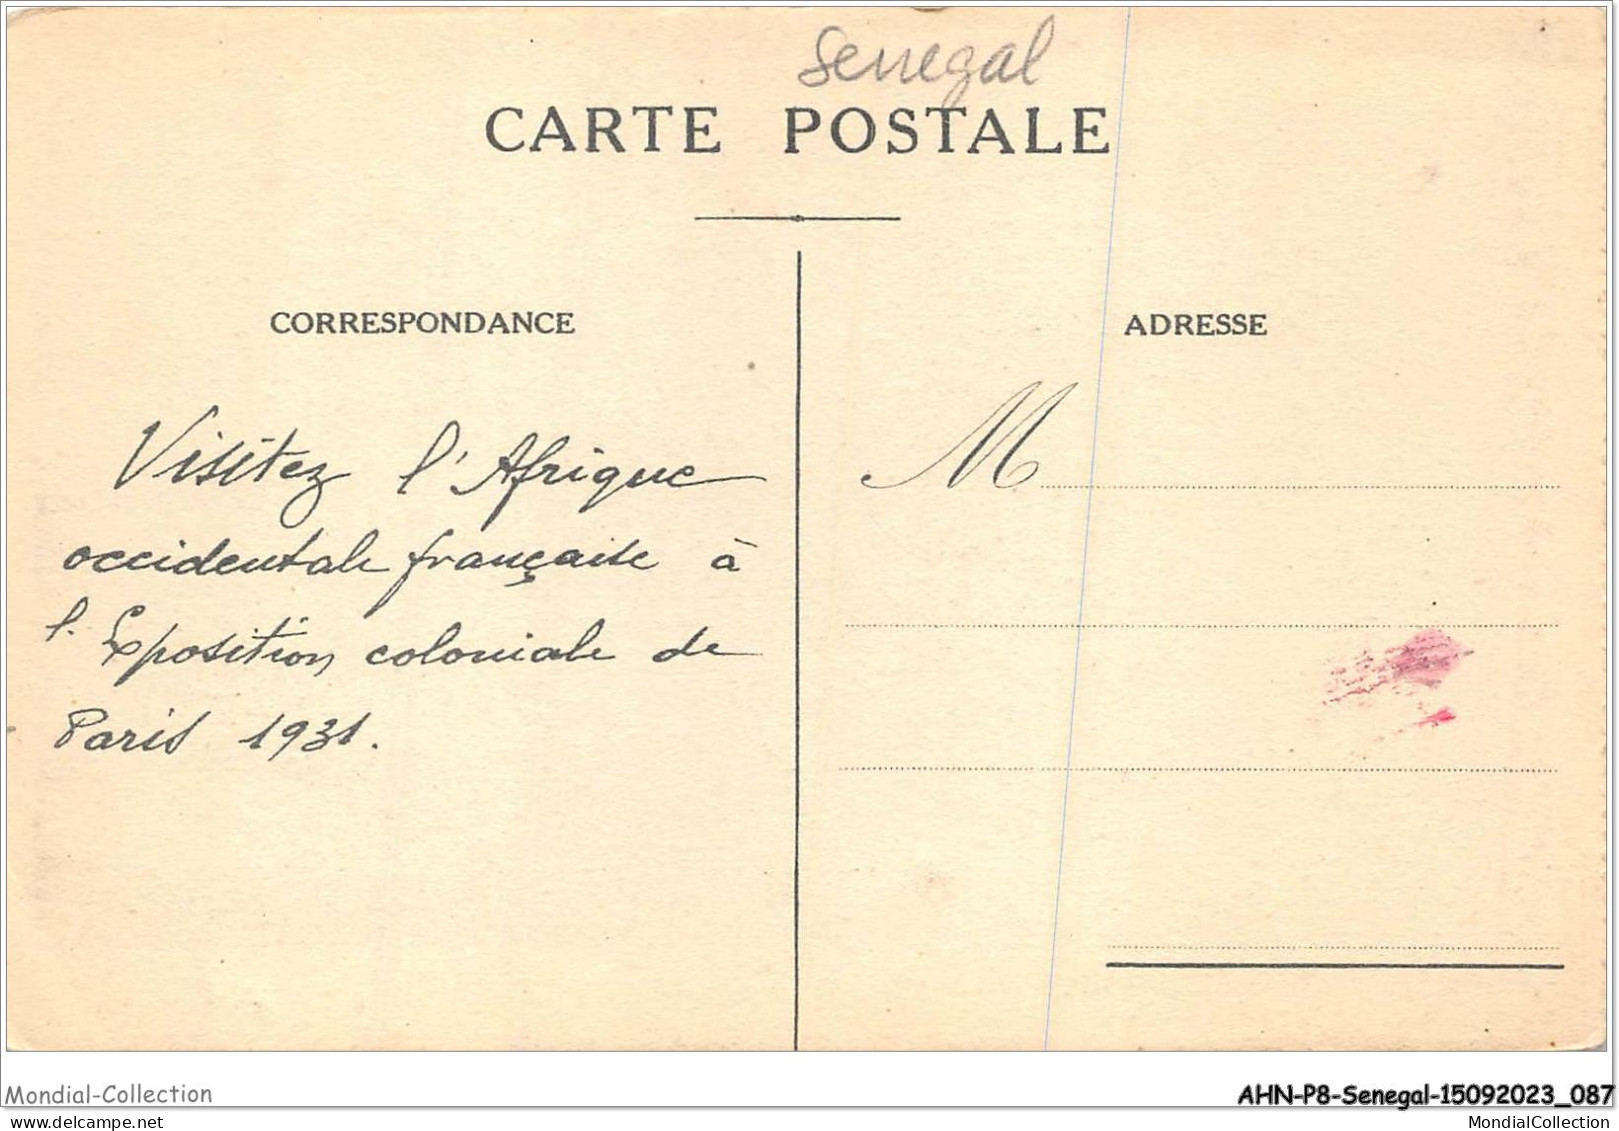 Senegal
CARTE POSTALE
CORRESPONDANCE
Visitez l'Afrique
occidentale française à
l'Exposition coloniale de
Paris 1931.
ADRESSE
M
Mondial-Collection
AHN-P8-Senegal-15092023_087
www.delcampe.net
MondialCollection